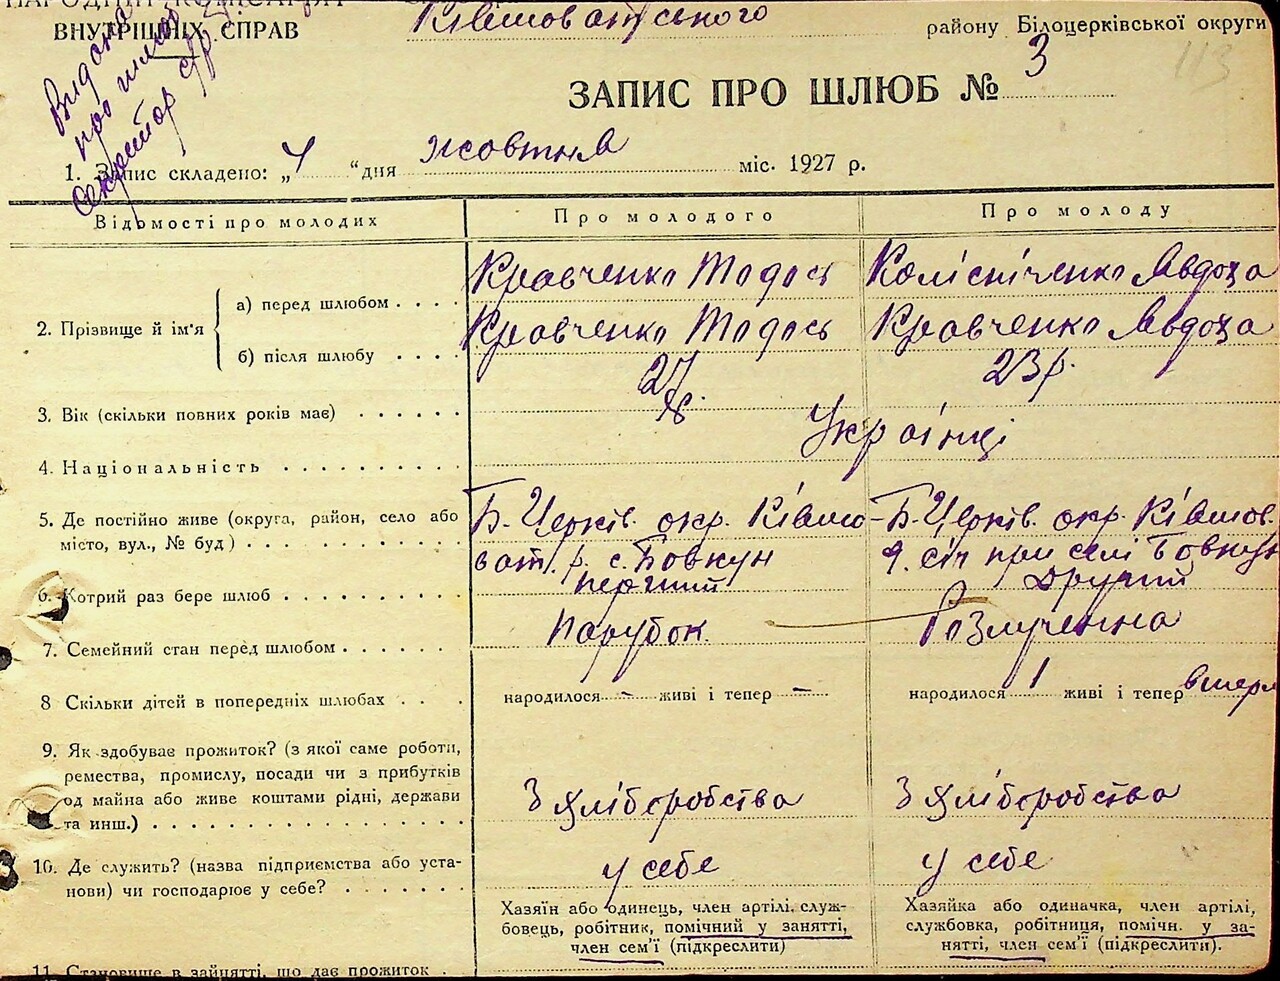 НАРОДНІЙ КОМІСАРІЯТ
ВНУТРІШНІХ СПРАВ
Ківшоватського району Білоцерківської округи
Видана
про шлюб
Секретар
113
ЗАПИС ПРО ШЛЮБ № 3
1. Запис складено: „4“ дня жовтня міс. 1927 р.
Відомості про молодих
Про молодого
Про молоду
2. Прізвище й ім'я
а) перед шлюбом . . . .
Кравченко Тодось
Колісніченко Явдоха
б) після шлюбу . . . .
Кравченко Тодось
Кравченко Явдоха
3. Вік (скільки повних років має) . . . . . .
27 р.
23 р.
4. Національність . . . . . . . . . .
Українці
5. Де постійно живе (округа, район, село або
місто, вул., № буд) . . . . . . . . . . . .
Б. Церків. окр. Ківшо-
ват. р. с. Бовкун
Б. Церків. окр. Ківшов.
при селі Бовкун
6. Котрий раз бере шлюб . . . . . . . . . .
перший
Другий
7. Семейний стан перед шлюбом . . . . . .
Парубок.
Розлученна
8 Скільки дітей в попередніх шлюбах . . .
народилося - живі і тепер -
народилося 1 живі і тепер вмерл
9. Як здобуває прожиток? (з якої саме роботи,
ремества, промислу, посади чи з прибутків
од майна або живе коштами рідні, держави
та инш.) . . . . . . . . . . . . . . . .
З хліборобства
З хліборобства
10. Де служить? (назва підприємства або уста-
нови) чи господарює у себе? . . . . . . .
у себе
у себе
Хазяїн або одинець, член артілі, служ-
бовець, робітник, помічний у занятті,
член сем'ї (підкреслити)
Хазяйка або одиначка, член артілі,
службовка, робітниця, помічн. у за-
нятті, член сем'ї (підкреслити).
11. Становище в зайнятті, що дає прожиток .